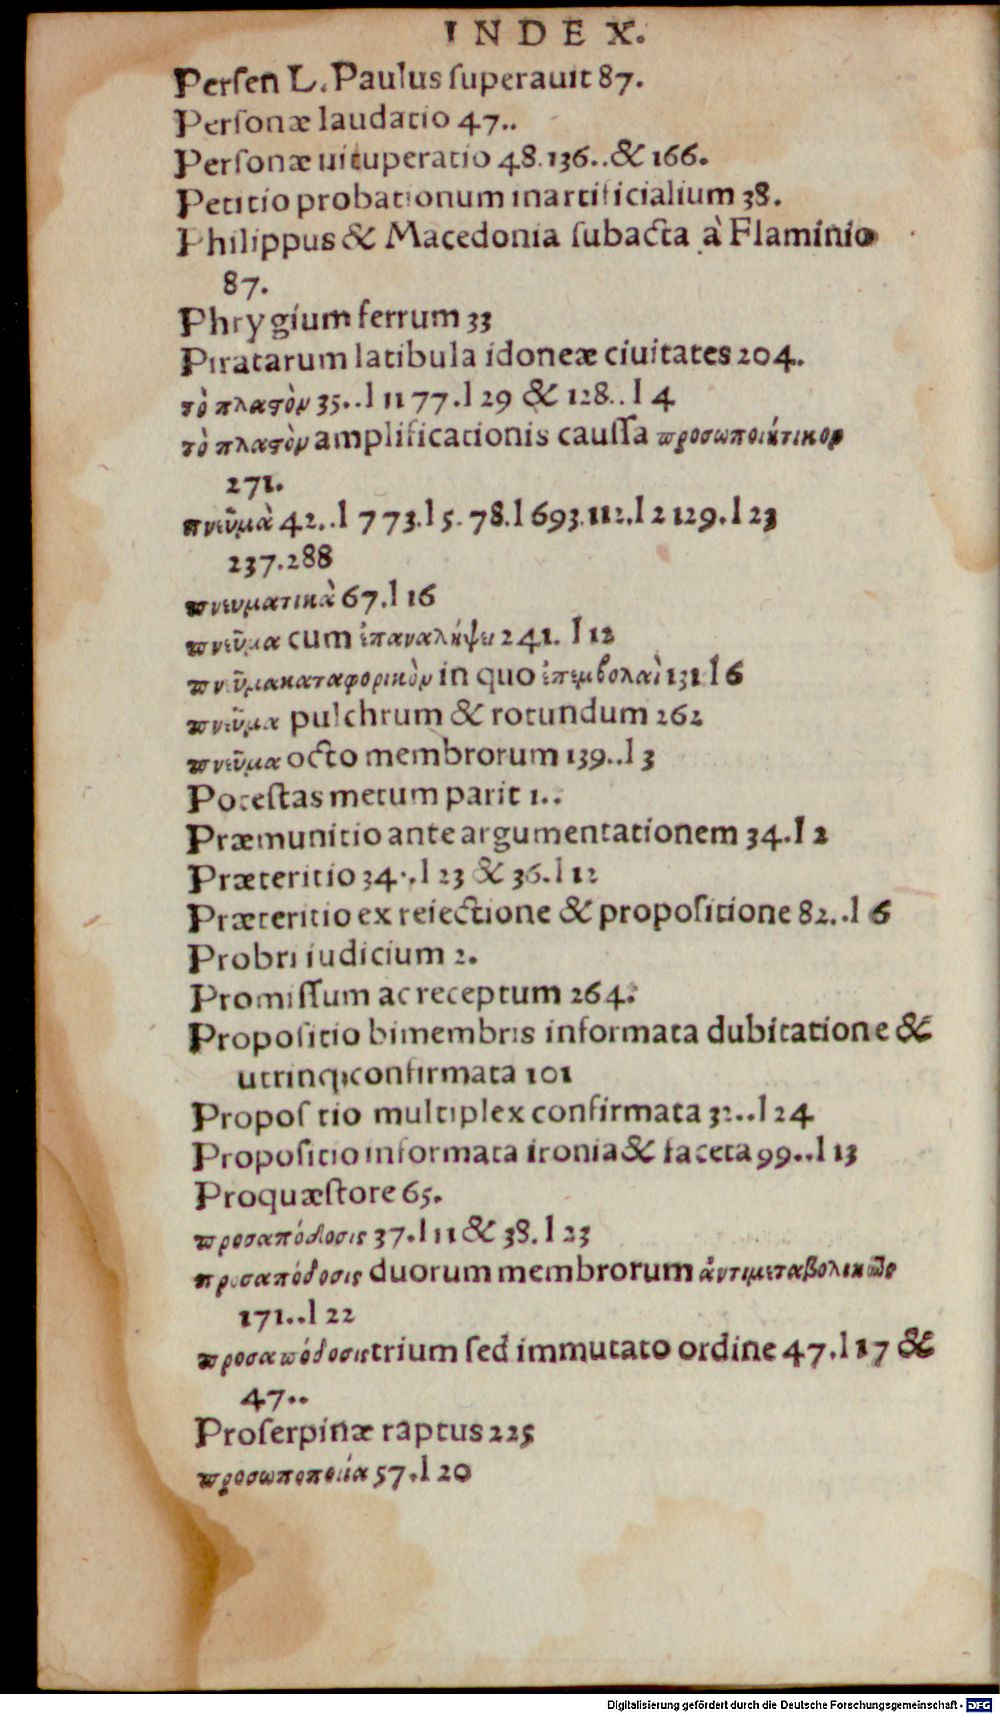 INDEX.
Perſen L. Paulus ſuperauit 87.
Perſonæ laudatio 47..
Perſonæ uituperatio 48.136..& 166.
Petitio probationum inartificialium 38.
Philippus & Macedonia ſubacta à Flaminio
87.
Phrygium ferrum 33
Piratarum latibula idoneæ ciuitates 204.
τὸ πλαϛὸν 35..l 11 77.l 29 & 128..l 4
τὸ πλαϛὸν amplificationis cauſſa προσωποιητικὸν
271.
πνεῦμὰ 42..l 7 73.l 5. 78.l 693.112.l 2 129.l 23
237.288
πνευματικὰ 67.l 16
πνεῦμα cum ἐπαναλήψει 241. l 12
πνεῦμακαταφορικὸν in quo ἐπεμβολαὶ 131 l 6
πνεῦμα pulchrum & rotundum 262
πνεῦμα octo membrorum 139..l 3
Poteſtas metum parit 1..
Præmunitio ante argumentationem 34.l 2
Præteritio 34..l 23 & 36.l 12
Præteritio ex reiectione & propoſitione 82..l 6
Probri iudicium 2.
Promiſſum ac receptum 264.
Propoſitio bimembris informata dubitatione &
utrinq;confirmata 101
Propoſ tio multiplex confirmata 32..l 24
Propoſitio informata ironia & faceta 99..l 13
Proquæſtore 65.
προσαπόδοσις 37.l 11 & 38.l 23
προσαπόδοσις duorum membrorum ἀντιμεταβολικῶς
171..l 22
προσαπόδοσις trium ſed immutato ordine 47.l 17 &
47..
Proſerpinæ raptus 225
προσωποποιία 57.l 20
Digitalisierung gefördert durch die Deutsche Forschungsgemeinschaft - DFG